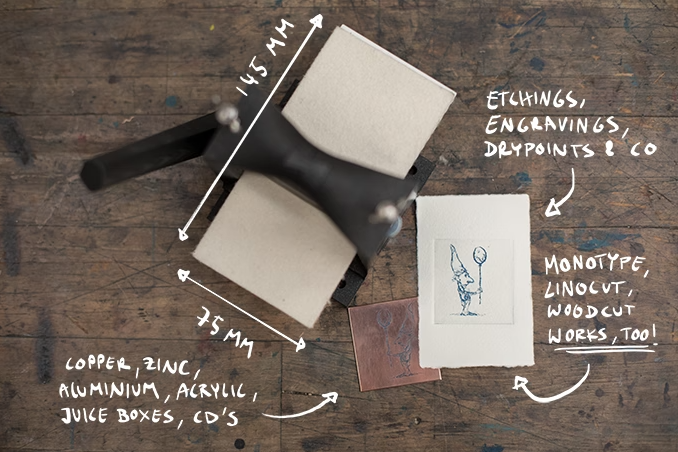 145 MM
ETCHINGS,
ENGRAVINGS,
DRYPOINTS & CO
MONOTYPE,
LINOCUT,
WOODCUT
WORKS, TOO!
75 MM
COPPER, ZINC,
ALUMINIUM, ACRYLIC,
JUICE BOXES, CD'S